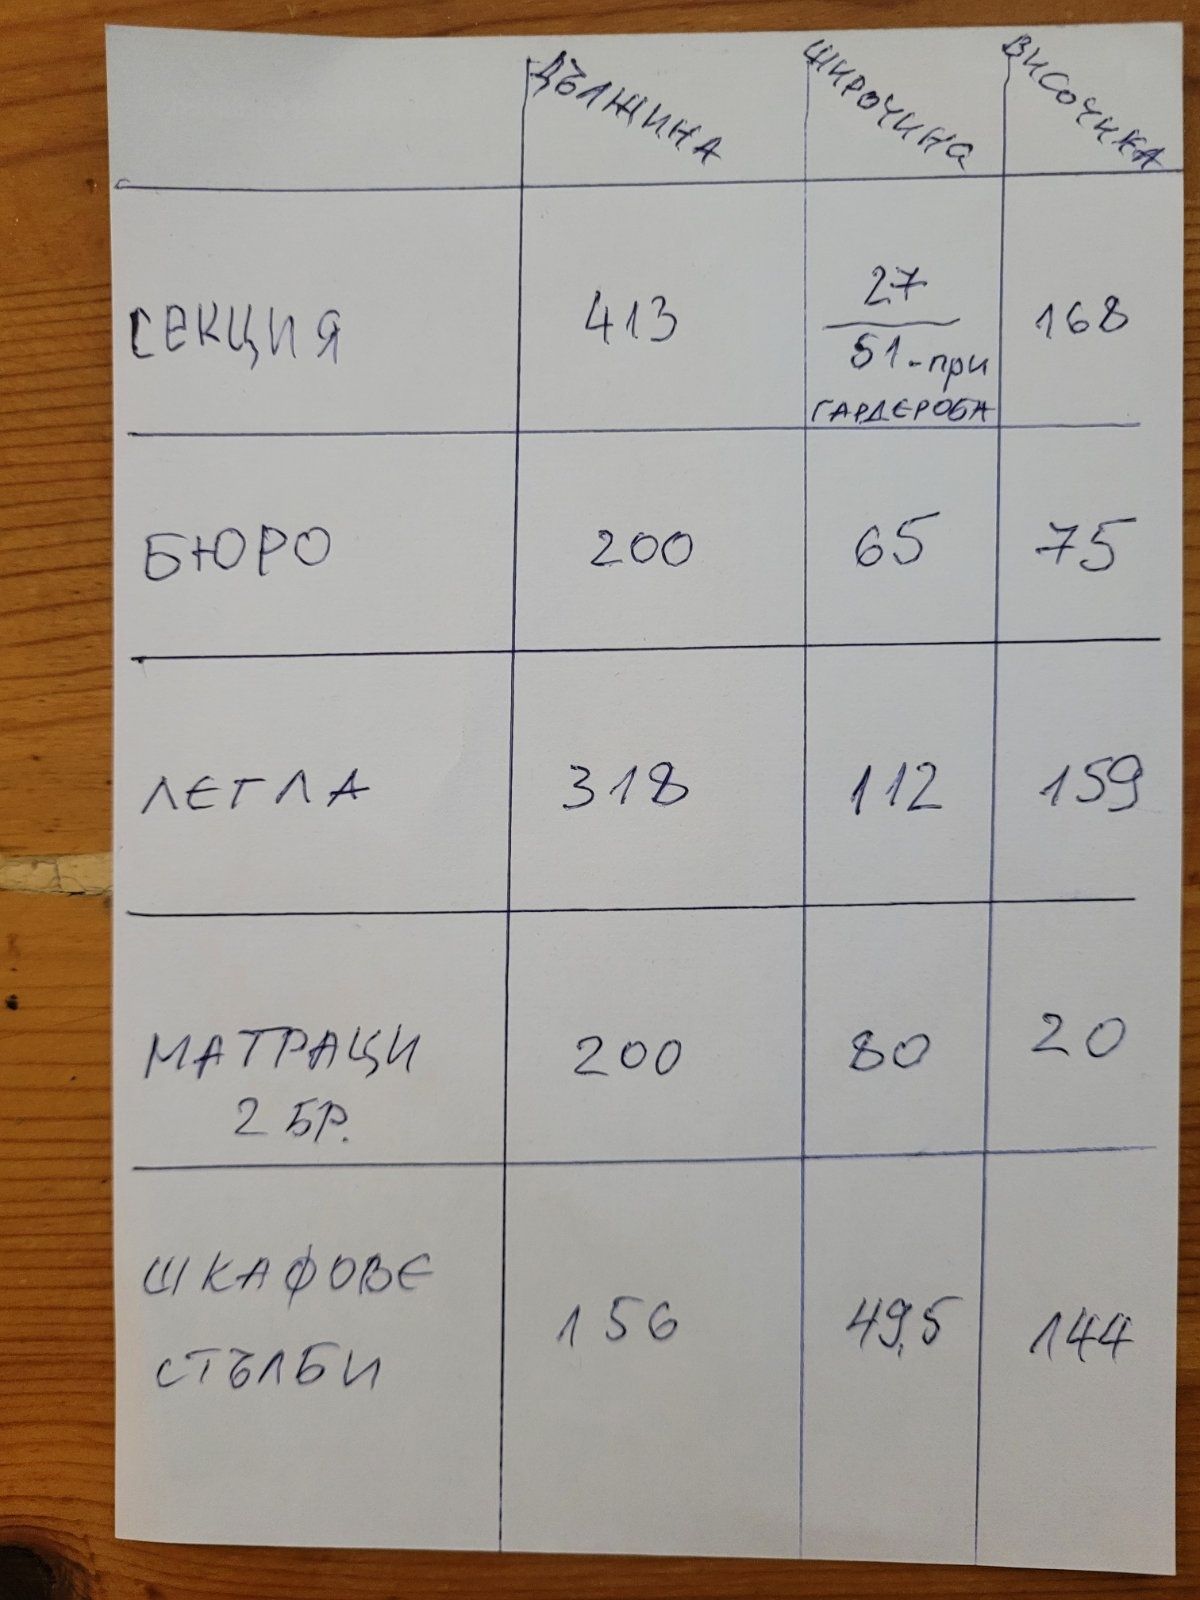 ДЪЛЖИНА ШИРОЧИНА ВИСОЧИНА
СЕКЦИЯ 413 27 168
51-при
ГАРДЕРОБА
БЮРО 200 65 75
ЛЕГЛА 318 112 159
МАТРАЦИ 200 80 20
2 БР.
ШКАФОВЕ
СТЪЛБИ 156 49,5 144